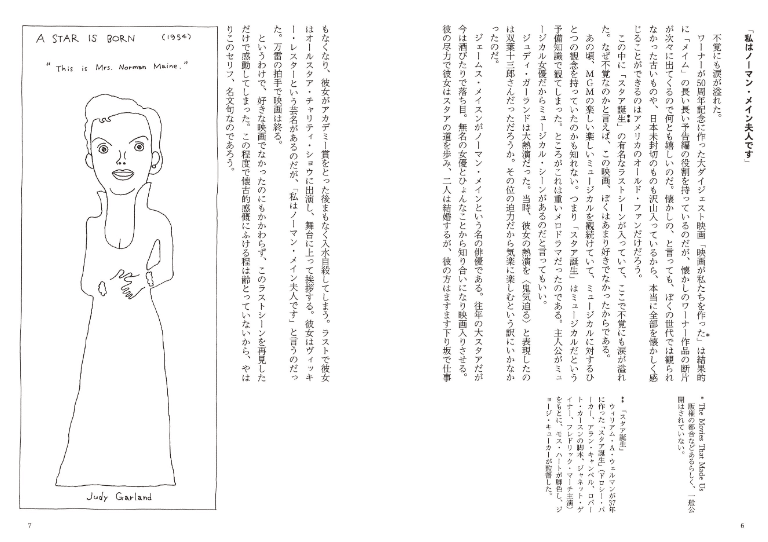 「私はノーマン・メイン夫人です」
不覚にも涙が溢れた。
ワーナーが50周年記念に作った大ダイジェスト映画「映画が私たちを作った*」は結果的
に「メイム」の長い長い予告編の役割を持っているのだが、懐かしのワーナー作品の断片
が次々に出てくるので何とも嬉しいのだ。懐かしの、と言っても、ぼくの世代では観られ
なかった古いものや、日本未封切のものも沢山入っているから、本当に全部を懐かしく感
じることができるのはアメリカのオールド・ファンだけだろう。
この中に「スタア誕生**」の有名なラストシーンが入っていて、ここで不覚にも涙が溢れ
た。なぜ不覚なのかと言えば、この映画、ぼくはあまり好きでなかったからである。
あの頃、MGMの楽しい楽しいミュージカルを観続けていて、ミュージカルに対するひ
とつの観念を持っていたのかも知れない。つまり「スタア誕生」はミュージカルだという
予備知識で観てしまった。ところがこれは重いメロドラマだったのである。主人公がミュ
ージカル女優だからミュージカル・シーンがあるのだと言ってもいい。
ジュディ・ガーランドは大熱演だった。当時、彼女の熱演を〈鬼気迫る〉と表現したの
は双葉十三郎さんだっただろうか。その位の迫力だから気楽に楽しむという訳にいかなか
ったのだ。
ジェームス・メイスンがノーマン・メインという名の俳優である。往年の大スタアだが
今は酒びたりで落ち目。無名の女優とひょんなことから知り合いになり映画入りさせる。
彼の尽力で彼女はスタアの道を歩み、二人は結婚するが、彼の方はますます下り坂で仕事
* The Movies That Made Us
版権の都合などあるらしく、一般公
開はされていない。
** 「スタア誕生」
ウィリアム・A・ウェルマンが37年
に作った「スタア誕生」(ドロシー・パ
ーカー、アラン・キャンベル、ロバー
ト・カースンの脚本、ジャネット・ゲ
イナー、フレドリック・マーチ主演)
をもとに、モス・ハートが脚色し、ジ
ョージ・キューカーが監督した。
6
もなくなり、彼女がアカデミー賞をとった後まもなく入水自殺してしまう。ラストで彼女
はオールスタア・チャリティ・ショウに出演し、舞台に上って挨拶する。彼女はヴィッキ
ー・レスターという芸名があるのだが、「私はノーマン・メイン夫人です」と言うのだっ
た。万雷の拍手で映画は終る。
というわけで、好きな映画でなかったのにもかかわらず、このラストシーンを再見した
だけで感動してしまった。この程度で懐古的感慨にふける程は齢とっていないから、やは
りこのセリフ、名文句なのであろう。
A STAR IS BORN (1954)
"This is Mrs. Norman Maine."
Judy Garland
7